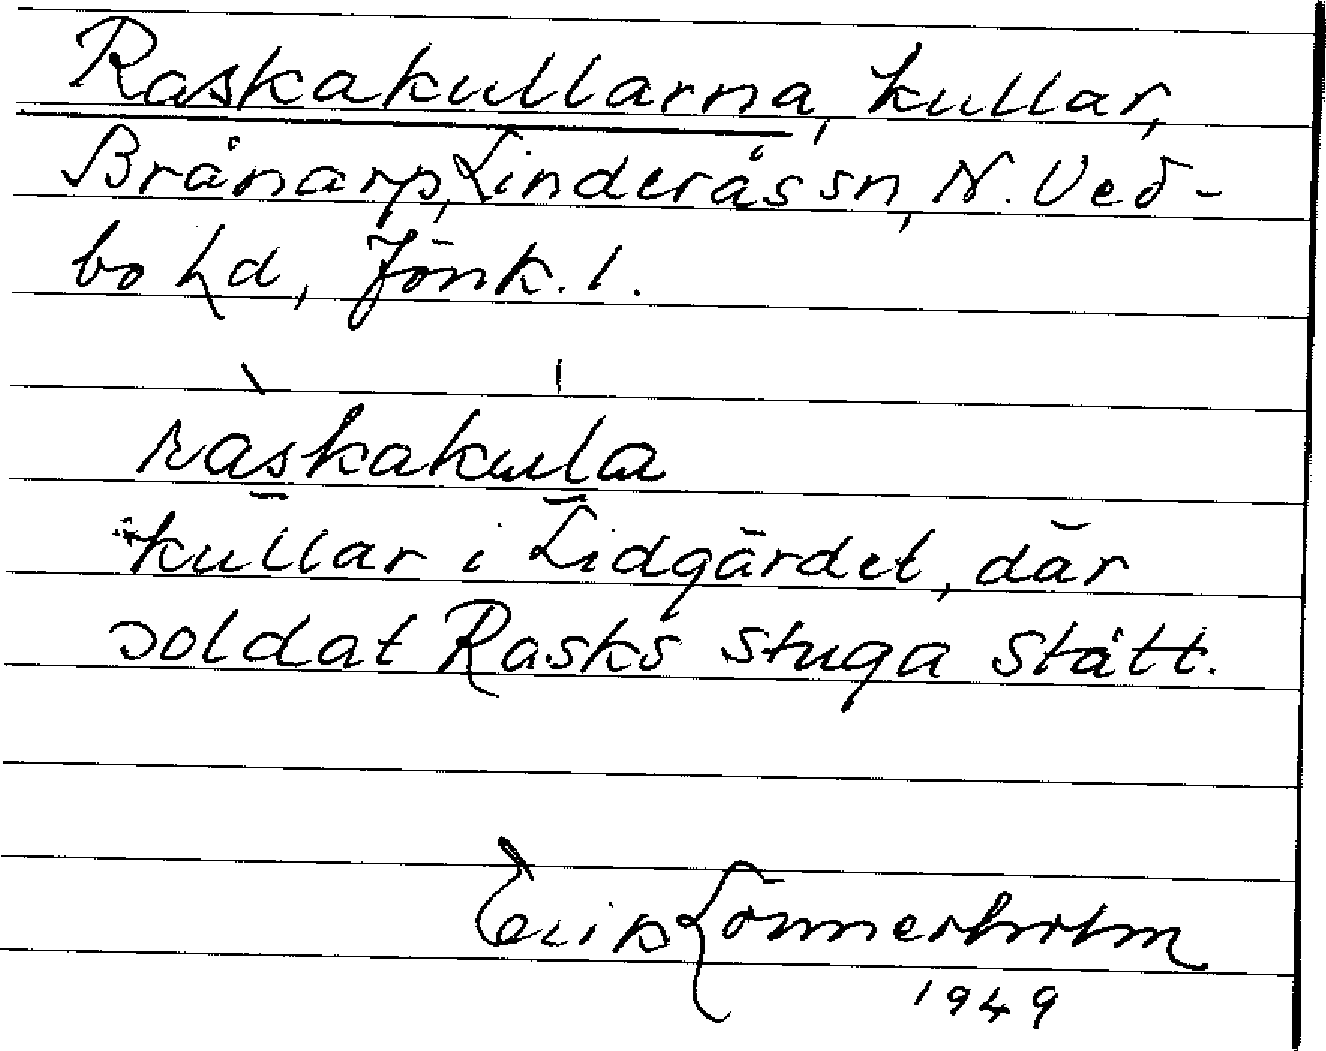 Raskakullarna, kullar,
Brånarp, Linderås sn, N. Ved-
bo hd, Jönk. l.
raskakula
kullar i Lidgärdet, där
soldat Rasks stuga stått.
Erik Lönnerholm
1949